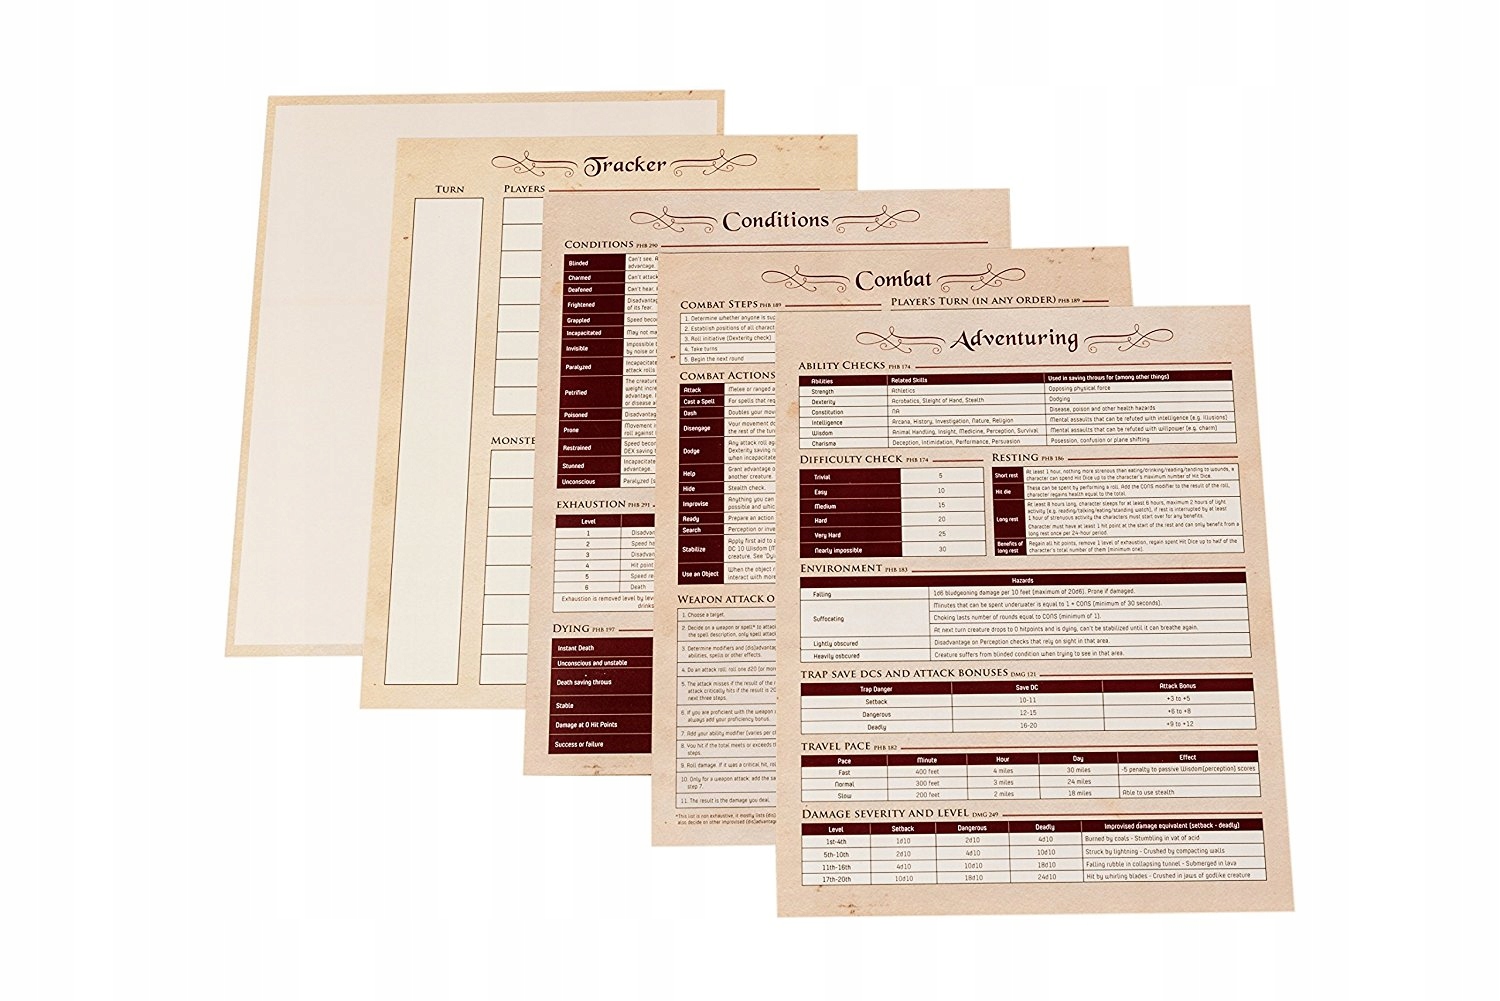 Tracker
TURN
PLAYERS
MONSTE
Conditions
CONDITIONS PHB 290
Blinded Can't see. A
advantage.
Charmed Can't attack
Deafened Can't hear.
Frightened Disadvantag
of its fear.
Grappled Speed becom
Incapacitated May not ma
Invisible Impossible
by noise or
Paralyzed Incapacitate
attack rolls
Petrified The creature
weight incre
advantage.
or disease a
Poisoned Disadvantag
Prone Movement i
roll against
Restrained Speed becom
DEX saving
Stunned Incapacitate
advantage.
Unconscious Paralyzed (s
EXHAUSTION PHB 291
Level
1 Disadvan
2 Speed ha
3 Disadvan
4 Hit point
5 Speed re
6 Death
Exhaustion is removed level by leve
drinks
DYING PHB 197
Instant Death
Unconscious and unstable
Death saving throws
Stable
Damage at 0 Hit Points
Success or failure
Combat
COMBAT STEPS PHB 189
1. Determine whether anyone is sup
2. Establish positions of all charact
3. Roll initiative (Dexterity check)
4. Take turns
5. Begin the next round
PLAYER'S TURN (IN ANY ORDER) PHB 189
COMBAT ACTIONS
Attack Melee or ranged a
Cast a Spell For spells that req
Dash Doubles your mov
Disengage Your movement do
the rest of the tur
Dodge Any attack roll ag
Dexterity saving r
when incapacitate
Help Grant advantage o
another creature.
Hide Stealth check.
Improvise Anything you can
possible and whic
Ready Prepare an action
Search Perception or inve
Stabilize Apply first aid to
DC 10 Wisdom (M
creature. See 'Dyi
Use an Object When the object r
interact with more
WEAPON ATTACK O
1. Choose a target.
2. Decide on a weapon or spell* to attac
the spell description, only spell attack
3. Determine modifiers and (dis)advantag
abilities, spells or other effects.
4. Do an attack roll: roll one d20 (or more
5. The attack misses if the result of the
attack critically hits if the result is 20
next three steps.
6. If you are proficient with the weapon
always add your proficiency bonus.
7. Add your ability modifier (varies per c
8. You hit if the total meets or exceeds t
steps.
9. Roll damage. If it was a critical hit, rol
10. Only for a weapon attack: add the sa
step 7.
11. The result is the damage you deal.
*This list is non exhaustive, it mostly lists (dis)
also decide on other improvised (dis)advantag
Adventuring
ABILITY CHECKS PHB 174
Abilities Related Skills Used in saving throws for (among other things)
Strength Athletics Opposing physical force
Dexterity Acrobatics, Sleight of Hand, Stealth Dodging
Constitution NA Disease, poison and other health hazards
Intelligence Arcana, History, Investigation, Nature, Religion Mental assaults that can be refuted with intelligence (e.g. illusions)
Wisdom Animal Handling, Insight, Medicine, Perception, Survival Mental assaults that can be refuted with willpower (e.g. charm)
Charisma Deception, Intimidation, Performance, Persuasion Posession, confusion or plane shifting
DIFFICULTY CHECK PHB 174
Trivial 5
Easy 10
Medium 15
Hard 20
Very Hard 25
Nearly impossible 30
RESTING PHB 186
Short rest At least 1 hour, nothing more strenous than eating/drinking/reading/tending to wounds, a
character can spend Hit Dice up to the character's maximum number of Hit Dice.
Hit die These can be spent by performing a roll. Add the CONS modifier to the result of the roll,
character regains health equal to the total.
Long rest At least 8 hours long, character sleeps for at least 6 hours, maximum 2 hours of light
activity (e.g. reading/talking/eating/standing watch), if rest is interrupted by at least
1 hour of strenuous activity the characters must start over for any benefits.
Character must have at least 1 hit point at the start of the rest and can only benefit from a
long rest once per 24-hour period.
Benefits of long rest Regain all hit points, remove 1 level of exhaustion, regain spent Hit Dice up to half of the
character's total number of them (minimum one).
ENVIRONMENT PHB 183
Hazards
Falling 1d6 bludgeoning damage per 10 feet (maximum of 20d6). Prone if damaged.
Suffocating Minutes that can be spent underwater is equal to 1 + CONS (minimum of 30 seconds).
Choking lasts number of rounds equal to CONS (minimum of 1).
At next turn creature drops to 0 hitpoints and is dying, can't be stabilized until it can breathe again.
Lightly obscured Disadvantage on Perception checks that rely on sight in that area.
Heavily osbcured Creature suffers from blinded condition when trying to see in that area.
TRAP SAVE DCS AND ATTACK BONUSES DMG 121
Trap Danger Save DC Attack Bonus
Setback 10-11 +3 to +5
Dangerous 12-15 +6 to +8
Deadly 16-20 +9 to +12
TRAVEL PACE PHB 182
Pace Minute Hour Day Effect
Fast 400 feet 4 miles 30 miles -5 penalty to passive Wisdom(perception) scores
Normal 300 feet 3 miles 24 miles
Slow 200 feet 2 miles 18 miles Able to use stealth
DAMAGE SEVERITY AND LEVEL DMG 249
Level Setback Dangerous Deadly Improvised damage equivalent (setback - deadly)
1st-4th 1d10 2d10 4d10 Burned by coals - Stumbling in vat of acid
5th-10th 2d10 4d10 10d10 Struck by lightning - Crushed by compacting walls
11th-16th 4d10 10d10 18d10 Falling rubble in collapsing tunnel - Submerged in lava
17th-20th 10d10 18d10 24d10 Hit by whirling blades - Crushed in jaws of godlike creature